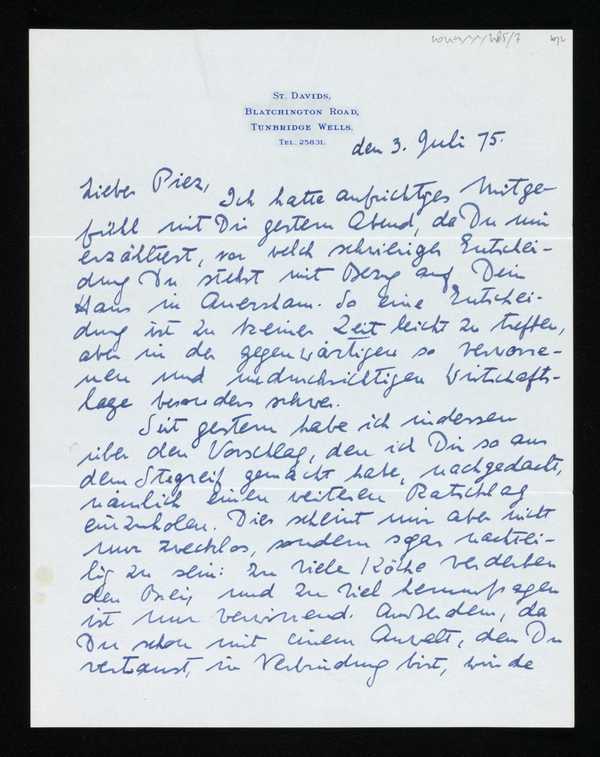 St. Davids,
Blatchington Road,
Tunbridge Wells.
Tel. 25831.
den 3. Juli 75.
Lieber Piez,
Ich hatte aufrichtiges Mitge-
fühl mit Dir gestern Abend, da Du mir
erzähltest, vor welch schwieriger Entschei-
dung Du stehst mit Bezug auf Dein
Haus in Amersham. So eine Entschei-
dung ist zu keiner Zeit leicht zu treffen,
aber in der gegenwärtigen so verworre-
nen und undurchsichtigen Wirtschafts-
lage besonders schwer.
Seit gestern habe ich indessen
über den Vorschlag, den ich Dir so aus
dem Stegreif gemacht habe, nachgedacht,
nämlich einen weiteren Ratschlag
einzuholen. Dies scheint mir aber nicht
nur zwecklos, sondern sogar nachtei-
lig zu sein: zu viele Köche verderben
den Brei, und zu viel herumfragen
ist nur verwirrend. Außerdem, da
Du schon mit einem Anwalt, dem Du
vertraust, in Verbindung bist, würde